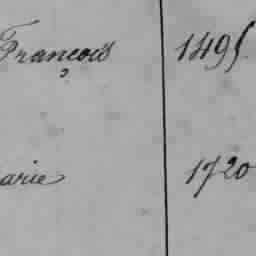 François 1495
arie 1720